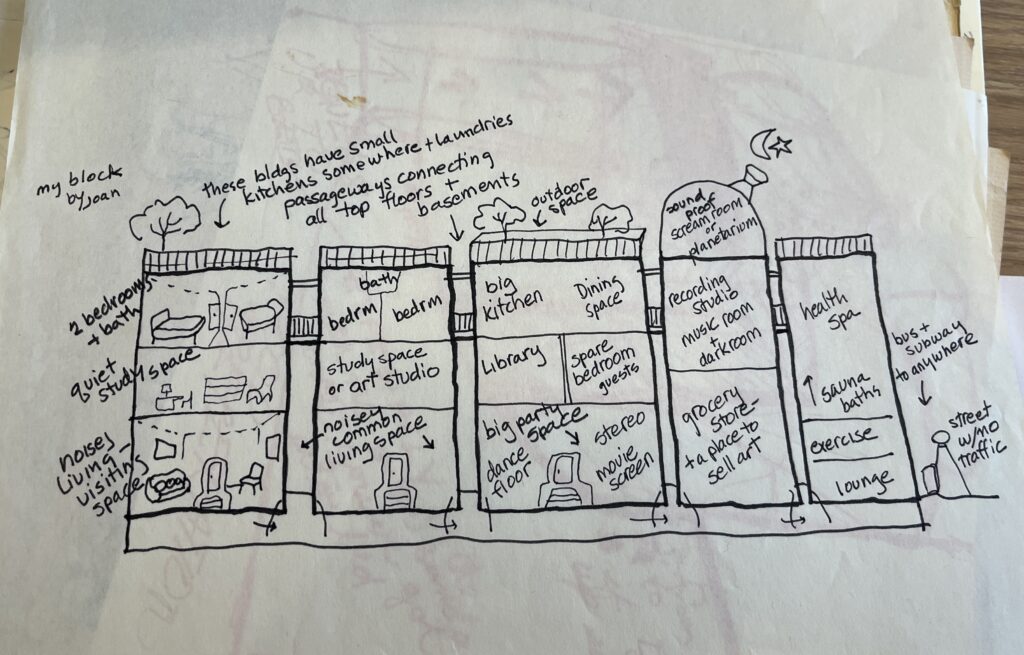 my block
by Joan
these bldgs have small
kitchens somewhere + laundries
passageways connecting
all top floors +
basements
outdoor
space
sound
proof
scream room
or
planetarium
2 bedrooms
+ bath
quiet
study space
noisey
living -
visiting
space
bath
bedrm
bedrm
study space
or art studio
noisey
common
living space
big
kitchen
Dining
space
Library
spare
bedroom
guests
big party
space
dance
floor
stereo
movie
screen
recording
studio
music room
+
darkroom
grocery
store -
+ a place to
sell art
health
spa
sauna
baths
exercise
lounge
bus +
subway
to anywhere
street
w/no
traffic